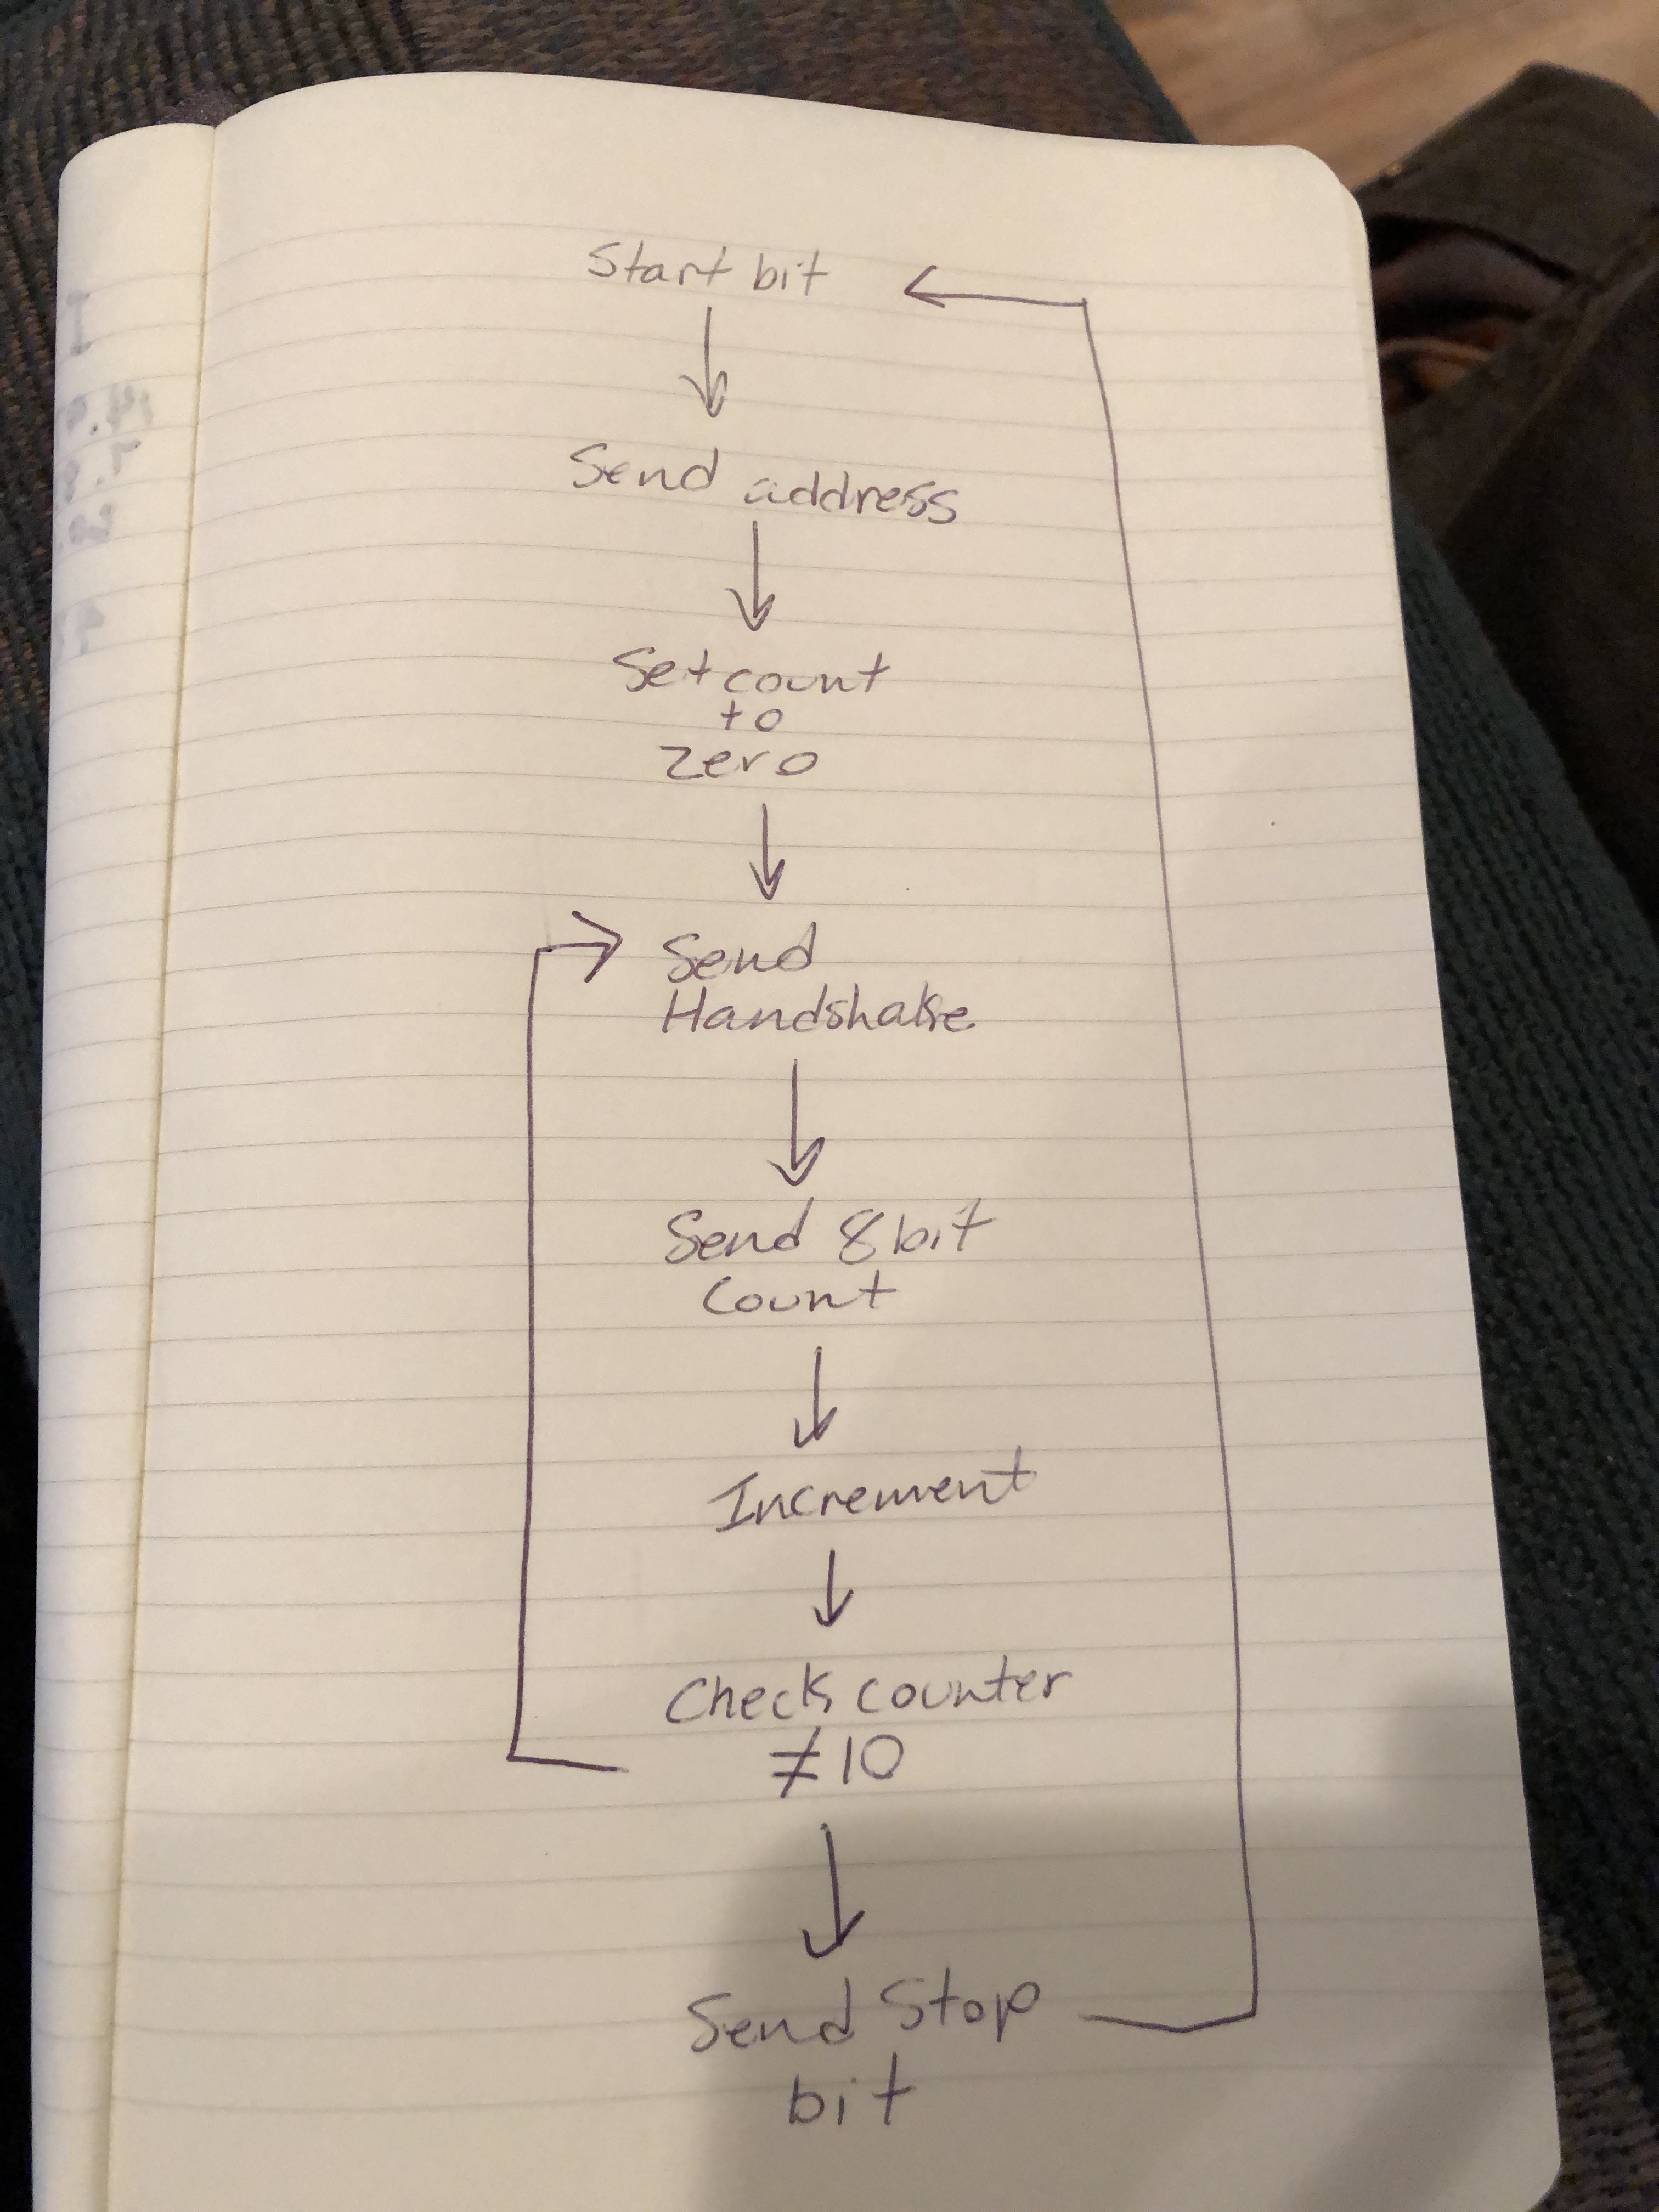 Start bit
Send address
Set count
to
zero
Send
Handshake
Send 8 bit
Count
Increment
Check counter
≠10
Send Stop
bit